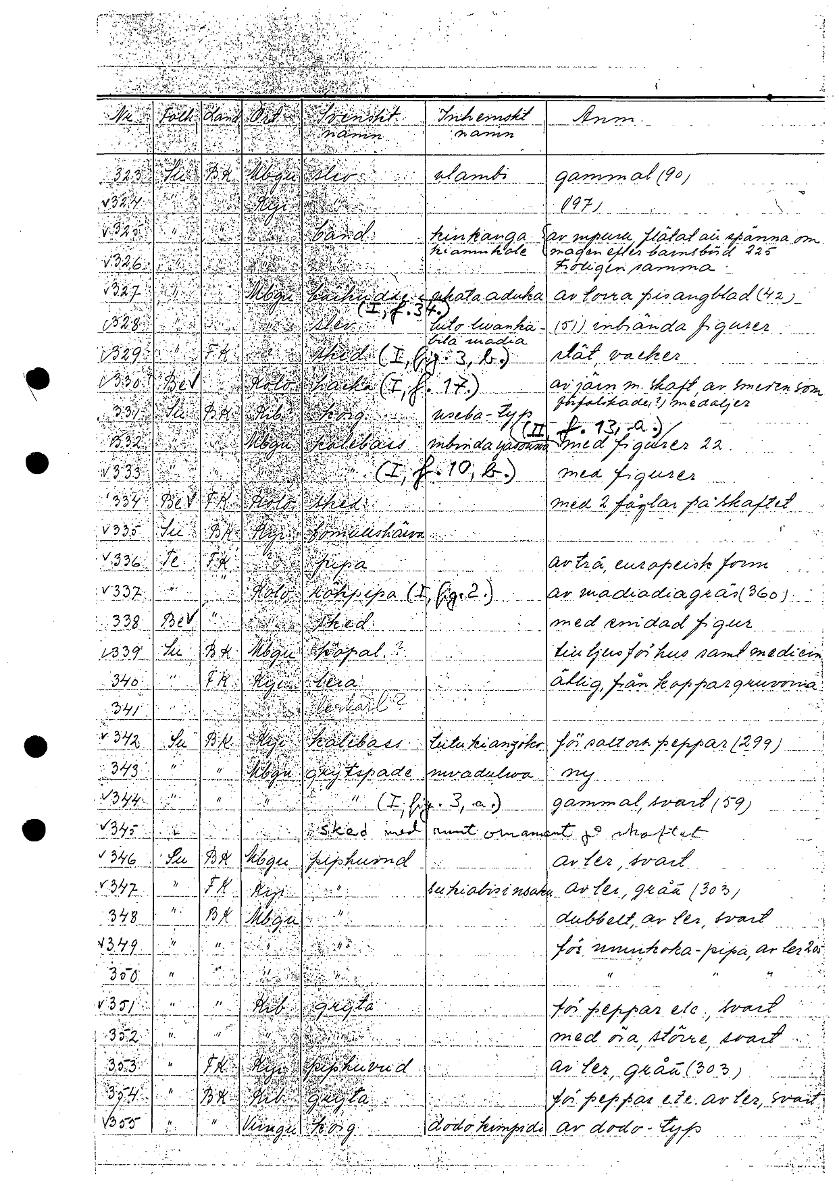 Nr Folk Land Ort Svenskt namn Inhemskt namn Anm.
323 Su BK Mbgu slev vlambi gammal (90)
v324 " " Kyi " (97)
v325 " " " band kinkanga av mpusu flätat att spänna om
kiamukole magen efter barnsbörd 225
v326 " " " " troligen samma
v327 " " Mbgu nkata aduka av torra pisangblad (42)
(I, f. 34.)
v328 " " slev luto lwanka- (51) inbrända figurer
bila madia
v329 " FK " sked (I, fig. 3, b.) slät vacker
v330 Bev " Kolo hacka (I, f. 17.) av järn m. skaft av
medaljer
331 Su BK Kib korg nseba-typ
(II, f. 13, a.)
332 " " Mbgu kalebass mbinda med figurer 22
v333 " " " " (I, f. 10, b.) med figurer
v334 Bev FK Kolo sked med 2 fåglar på skaftet
v335 Su BK Kyi
v336 Te FK " pipa av trä, europeisk form
v337 " " Kolo rökpipa (I, fig. 2.) av madiadiagräs (360)
338 Bev " " sked med snidad figur
v339 Su BK Mbgu kopal ? till ljus för hus samt medicin
340 " FK Kyi lera ätlig, från koppargruvorna
341 ?
v342 Su BK Kyi kalebass tutu kianzoko för salt och peppar (299)
343 " " Mbgu grytspade mvadulwa ny
v344 " " " " (I, fig. 3, a.) gammal, svart (59)
v345 sked med runt ornament på skaftet
v346 Su BK Mbgu piphuvud av ler, svart
v347 " FK Kyi " av ler, gråa (303)
348 " BK Mbgu " dubbelt, av ler, svart
v349 " " " " för munkoka-pipa, av ler 205
350 " " " " " " "
v351 " " Kib gryta för peppar etc., svart
352 " " " " med öra, större, svart
353 " FK Kyi piphuvud av ler, gråa (303)
354 " BK Kib gryta för peppar etc. av ler, svart
v355 " " korg dodo kimpidi av dodo-typ